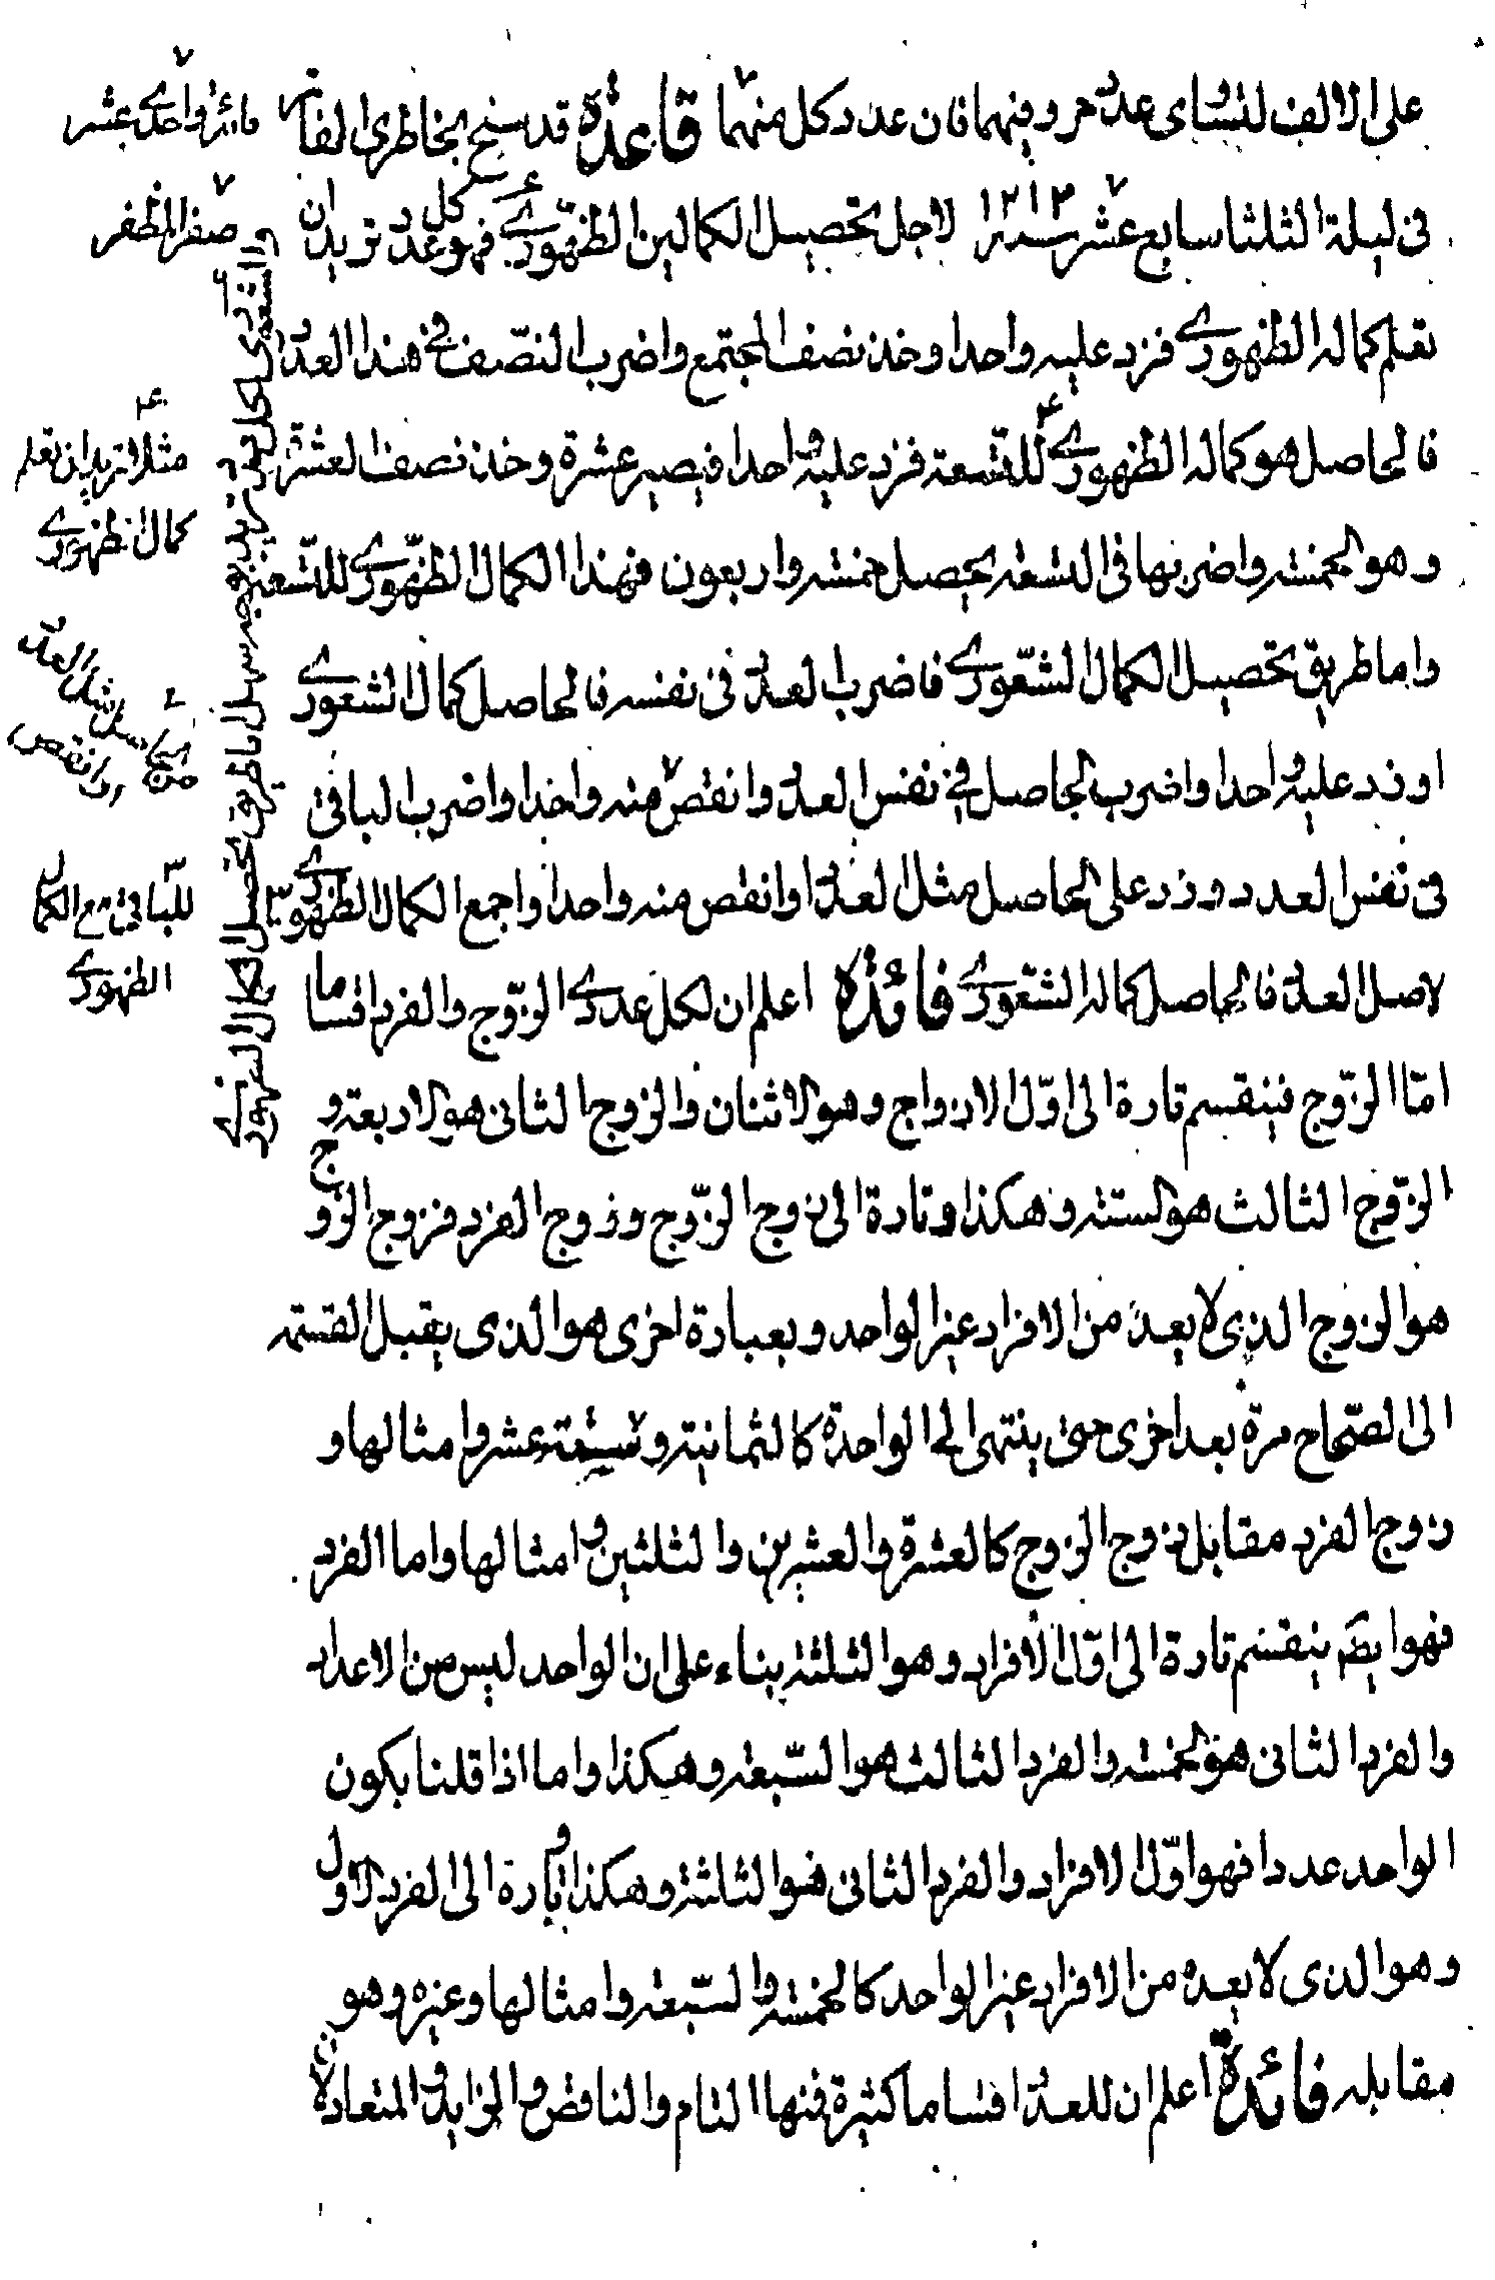 على الالف لتساوى عدد حروفهما فان عدد كل منهما قاعدة قد سنح بخاطرى الفاتر
فى ليلة الثلثا سابع عشر سنة ١٢١٣ لاجل تحصيل الكمالين الظهورى فهو كل عدد تريد ان
تعلم كماله الظهورى فزد عليه واحدا وخذ نصف المجتمع واضرب النصف فى هذا العدد
فالحاصل هو كماله الظهورى للتسعة فزد عليه واحدا فيصير عشرة وخذ نصف العشرة
وهو الخمسة واضربها فى التسعة يحصل خمسة واربعون فهذا الكمال الظهورى للتسعة
واما طريق تحصيل الكمال الشعورى فاضرب العدد فى نفسه فالحاصل كمال الشعورى
او زد عليه واحدا واضرب الحاصل فى نفس العدد وانقص منه واحدا واضرب الباقى
فى نفس العدد وزد على الحاصل مثل العدد او انقص منه واحدا واجمع الكمال الظهورى
لاصل العدد فالحاصل كماله الشعورى فائدة اعلم ان لكل عددى الزوج والفرد اقساما
امّا الزوج فينقسم تارة الى اوّل الازواج وهو الاثنان والزوج الثانى هو الاربعة و
الزوج الثالث هو الستة وهكذا وتارة الى زوج الزوج وزوج الفرد فزوج الزوج
هو الزوج الذى لا يعدّ من الافراد غير الواحد وبعبارة اخرى هو الذى يقبل القسمة
الى الصحاح مرة بعد اخرى حتى ينتهى الى الواحدة كالثمانية وستة عشر وامثالها و
زوج الفرد مقابل زوج الزوج كالعشرة والعشرين والثلثين وامثالها واما الفرد
فهو ايضا ينقسم تارة الى اوّل الافراد وهو الثلثة بناء على ان الواحد ليس من الاعداد
والفرد الثانى هو الخمسة والفرد الثالث هو السبعة وهكذا واما اذا قلنا بكون
الواحد عددا فهو اوّل الافراد والفرد الثانى هو الثلثة وهكذا وتارة الى الفرد الاول
وهو الذى لا يعده من الافراد غير الواحد كالخمسة والسبعة وامثالها وغيره وهو
مقابله فائدة اعلم ان للعدد اقساما كثيرة فمنها التام والناقص والزايد والمتعادلان
مائة واحدى عشر
صفر المظفر
مثلا تريد ان تعلم
كمال الظهورى
الحاصل مثل العدد
وانقص من
للباقى مع الكمال
الظهورى
والشعورى لكل عدد تريد بوجه سهل اما طريق تحصيل الكمال الظهورى